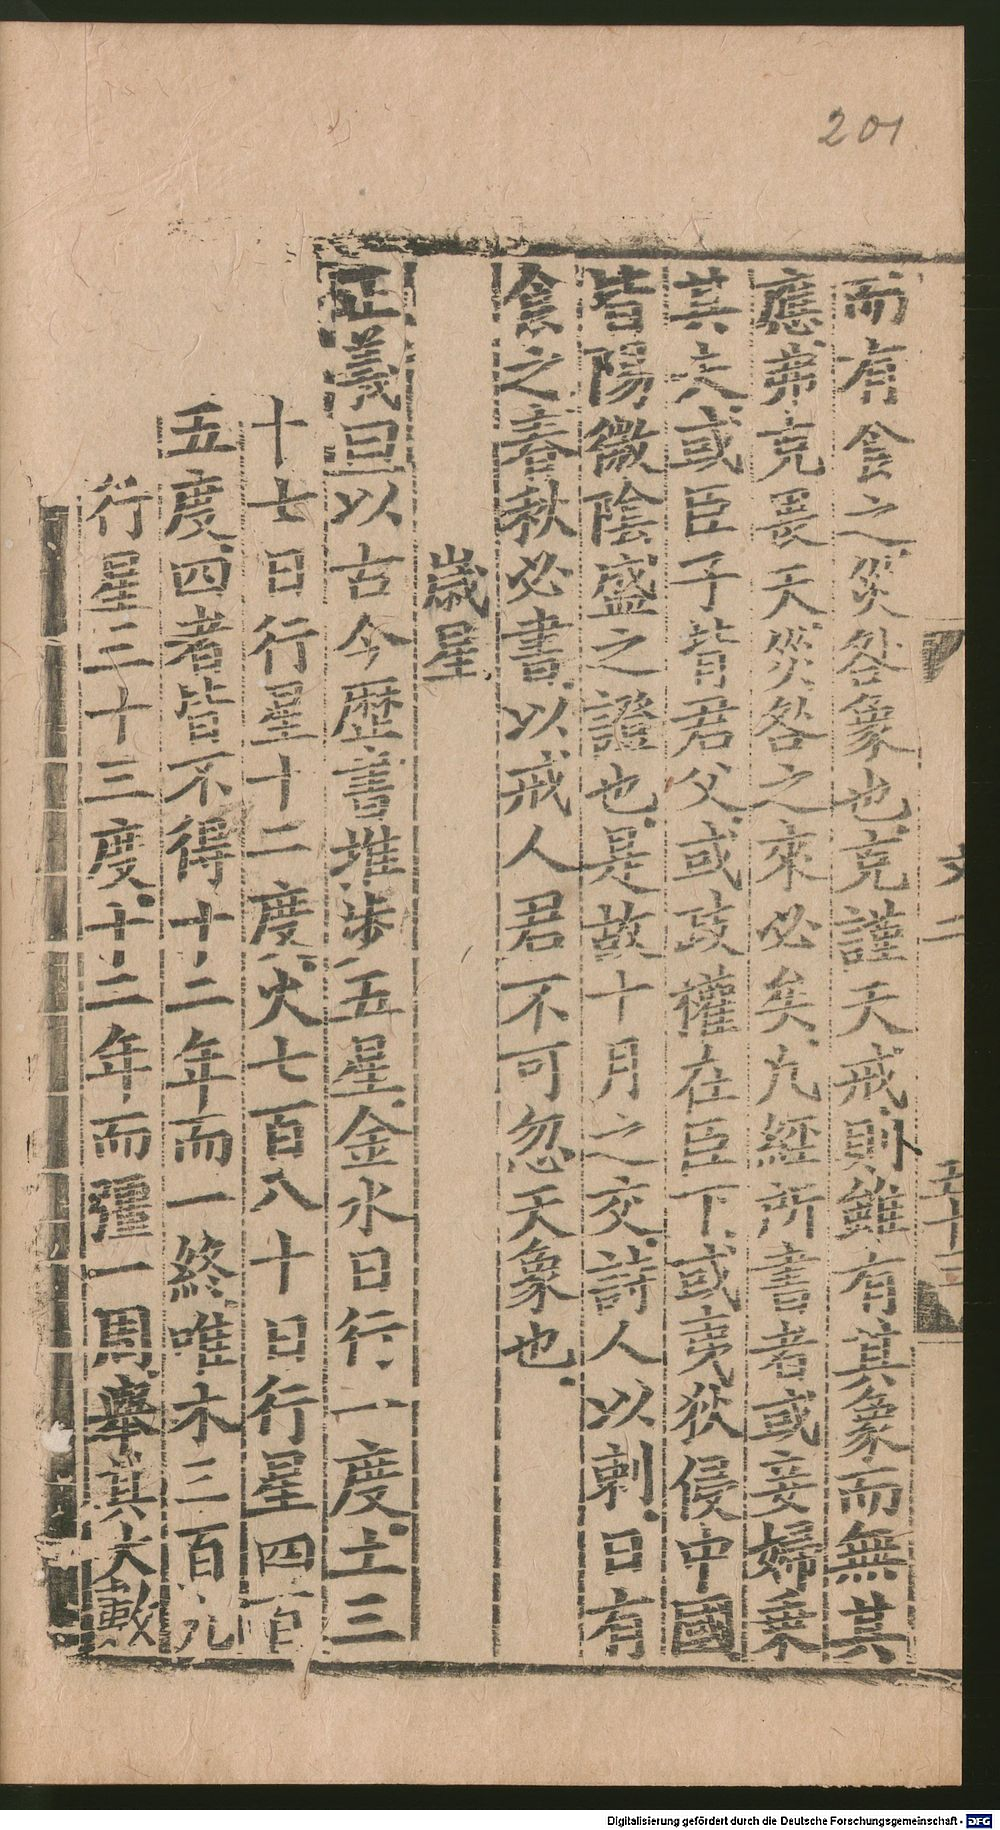 201
文二
五十三
而有食之災咎象也克謹天戒則雖有其象而無其
應弗克畏天災咎之來必矣凡經所書者或妾婦乗
其夫或臣子背君父或政權在臣下或夷狄侵中國
皆陽微陰盛之證也是故十月之交詩人以刺日有
食之春秋必書以戒人君不可忽天象也
歲星
正義曰以古今歷書推步五星金水日行一度土三
十七日行星十二度火七百八十日行星四百
五度四者皆不得十二年而一終唯木三百九
行星三十三度十二年而彊一周舉其大數
Digitalisierung gefördert durch die Deutsche Forschungsgemeinschaft - DFG